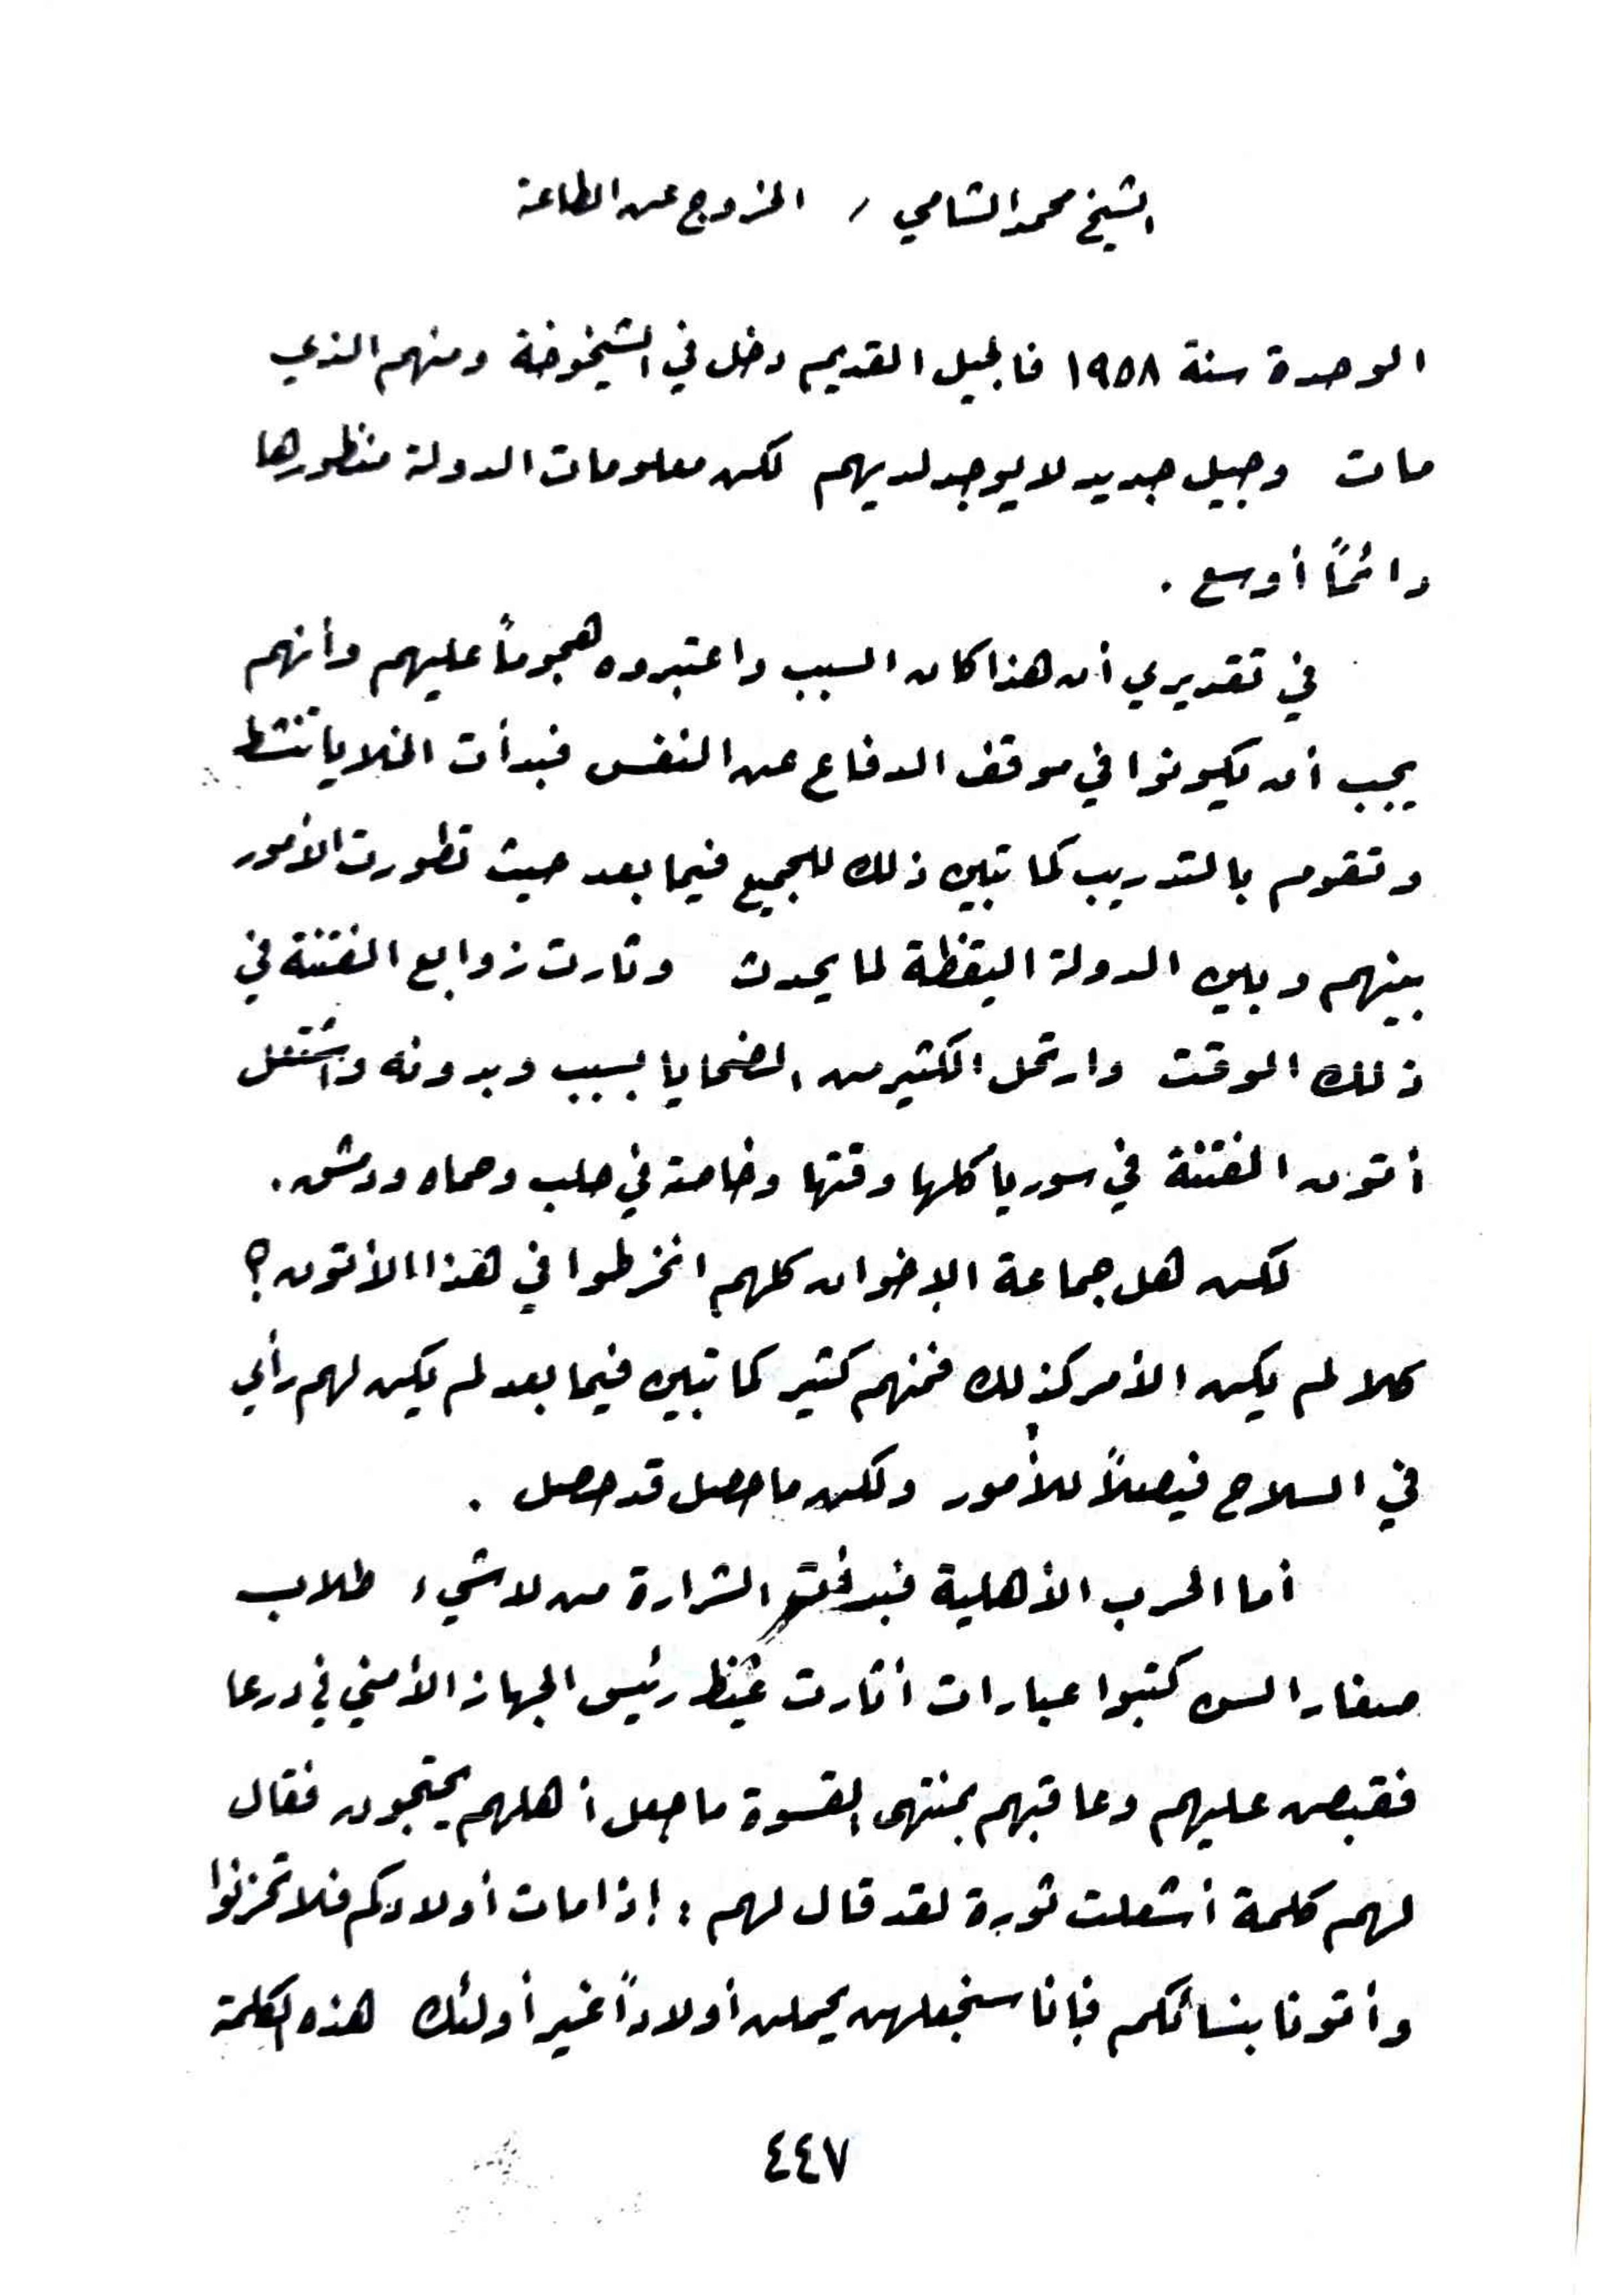 الشيخ محمد الشامي / الخروج عن الطاعة
الوحدة سنة ١٩٥٨ فالجيل القديم دخل في الشيخوخة ومنهم الذي
مات وجيل جديد لا يوجد لديهم لكن معلومات الدولة منظورها
دائماً أوسع .
في تقديري أن هذا كان السبب واعتبروه هجوماً عليهم وأنهم
يجب أن يكونوا في موقف الدفاع عن النفس فبدأت الخلايا تنشط
وتقوم بالتدريب كما تبين ذلك للجميع فيما بعد حيث تطورت الأمور
بينهم وبين الدولة اليقظة لما يحدث وثارت زوابع الفتنة في
ذلك الوقت وارتحل الكثير من الضحايا بسبب وبدونه واشتعل
أتون الفتنة في سوريا كلها وقتها وخاصة في حلب وحماه ودمشق.
لكن هل جماعة الإخوان كلهم انخرطوا في هذا الأتون؟
كلا لم يكن الأمر كذلك فمنهم كثير كما تبين فيما بعد لم يكن لهم رأي
في السلاح فيصلاً للأمور ولكن ما حصل قد حصل .
أما الحرب الأهلية الشرارة من لا شيء طلاب
صغار السن كتبوا عبارات أثارت غيظ رئيس الجهاز الأمني في درعا
فقبض عليهم وعاقبهم بمنتهى القسوة ما جعل أهلهم يحتجون فقال
لهم كلمة أشعلت ثورة لقد قال لهم : إذا مات أولادكم فلا تحزنوا
وأتونا بنسائكم فإنا سنجعلهن يحملن أولاداً غير أولئك هذه الكلمة
٤٤٧